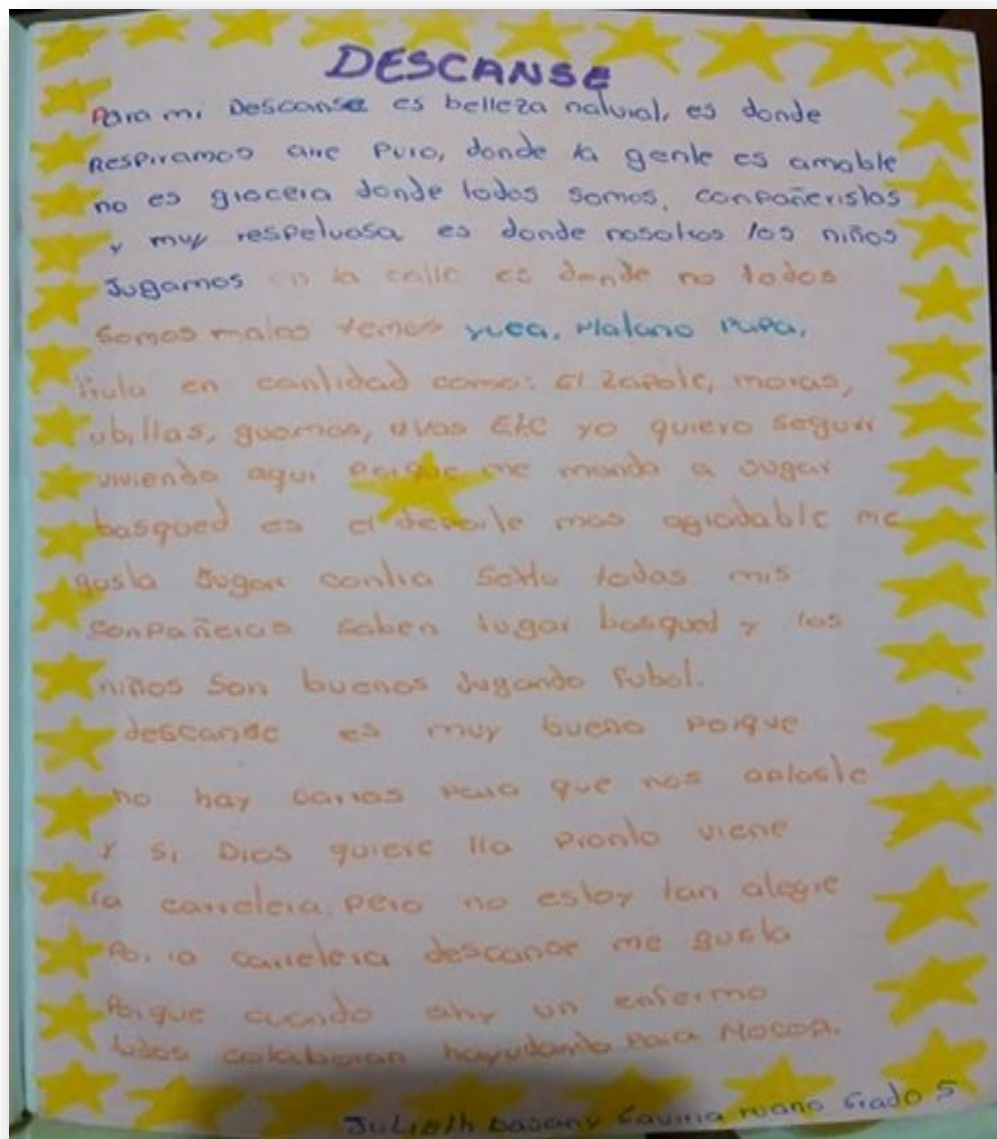 DESCANSE
Para mi Descanse es belleza natural, es donde
Respiramos aire Puro, donde la gente es amable
no es grocera donde todos somos, conpañeristas
y muy respetuosa es donde nosotros los niños
Jugamos en la calle es donde no todos
Somos malos temos yuca, Platano Papa,
fruta en cantidad como: El Zapote, moras,
ubillas, guamas, uvas Etc yo quiero seguir
viviendo aqui Porque me mando a Jugar
basqued es el deporte mas agradable me
gusta Jugar contra Sexto todas mis
conpañeras saben Jugar basqued y los
niños Son buenos Jugando Fubol.
descanse es muy bueno Porque
no hay carros Para que nos aplaste
y si Dios quiere lla Pronto viene
la carretera, pero no estoy tan alegre
Por la carretera descanse me gusta
Porque cuando ahy un enfermo
todos colaboran hayudando Para Mocoa.
Julieth Gaviria ruano Grado 5